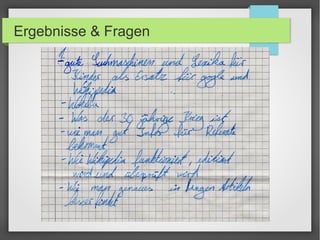 Ergebnisse & Fragen
- gute Suchmaschinen und Lexika für
Kinder als Ersatz für google und
Wikipedia
- Was der 30 jährige Krieg ist
- wie man gut Infos für Referate
bekommt
- Wie Wikipedia funktioniert, editiert
wird und überprüft wird
- Wie man genaues in langen Artikeln
besser findet